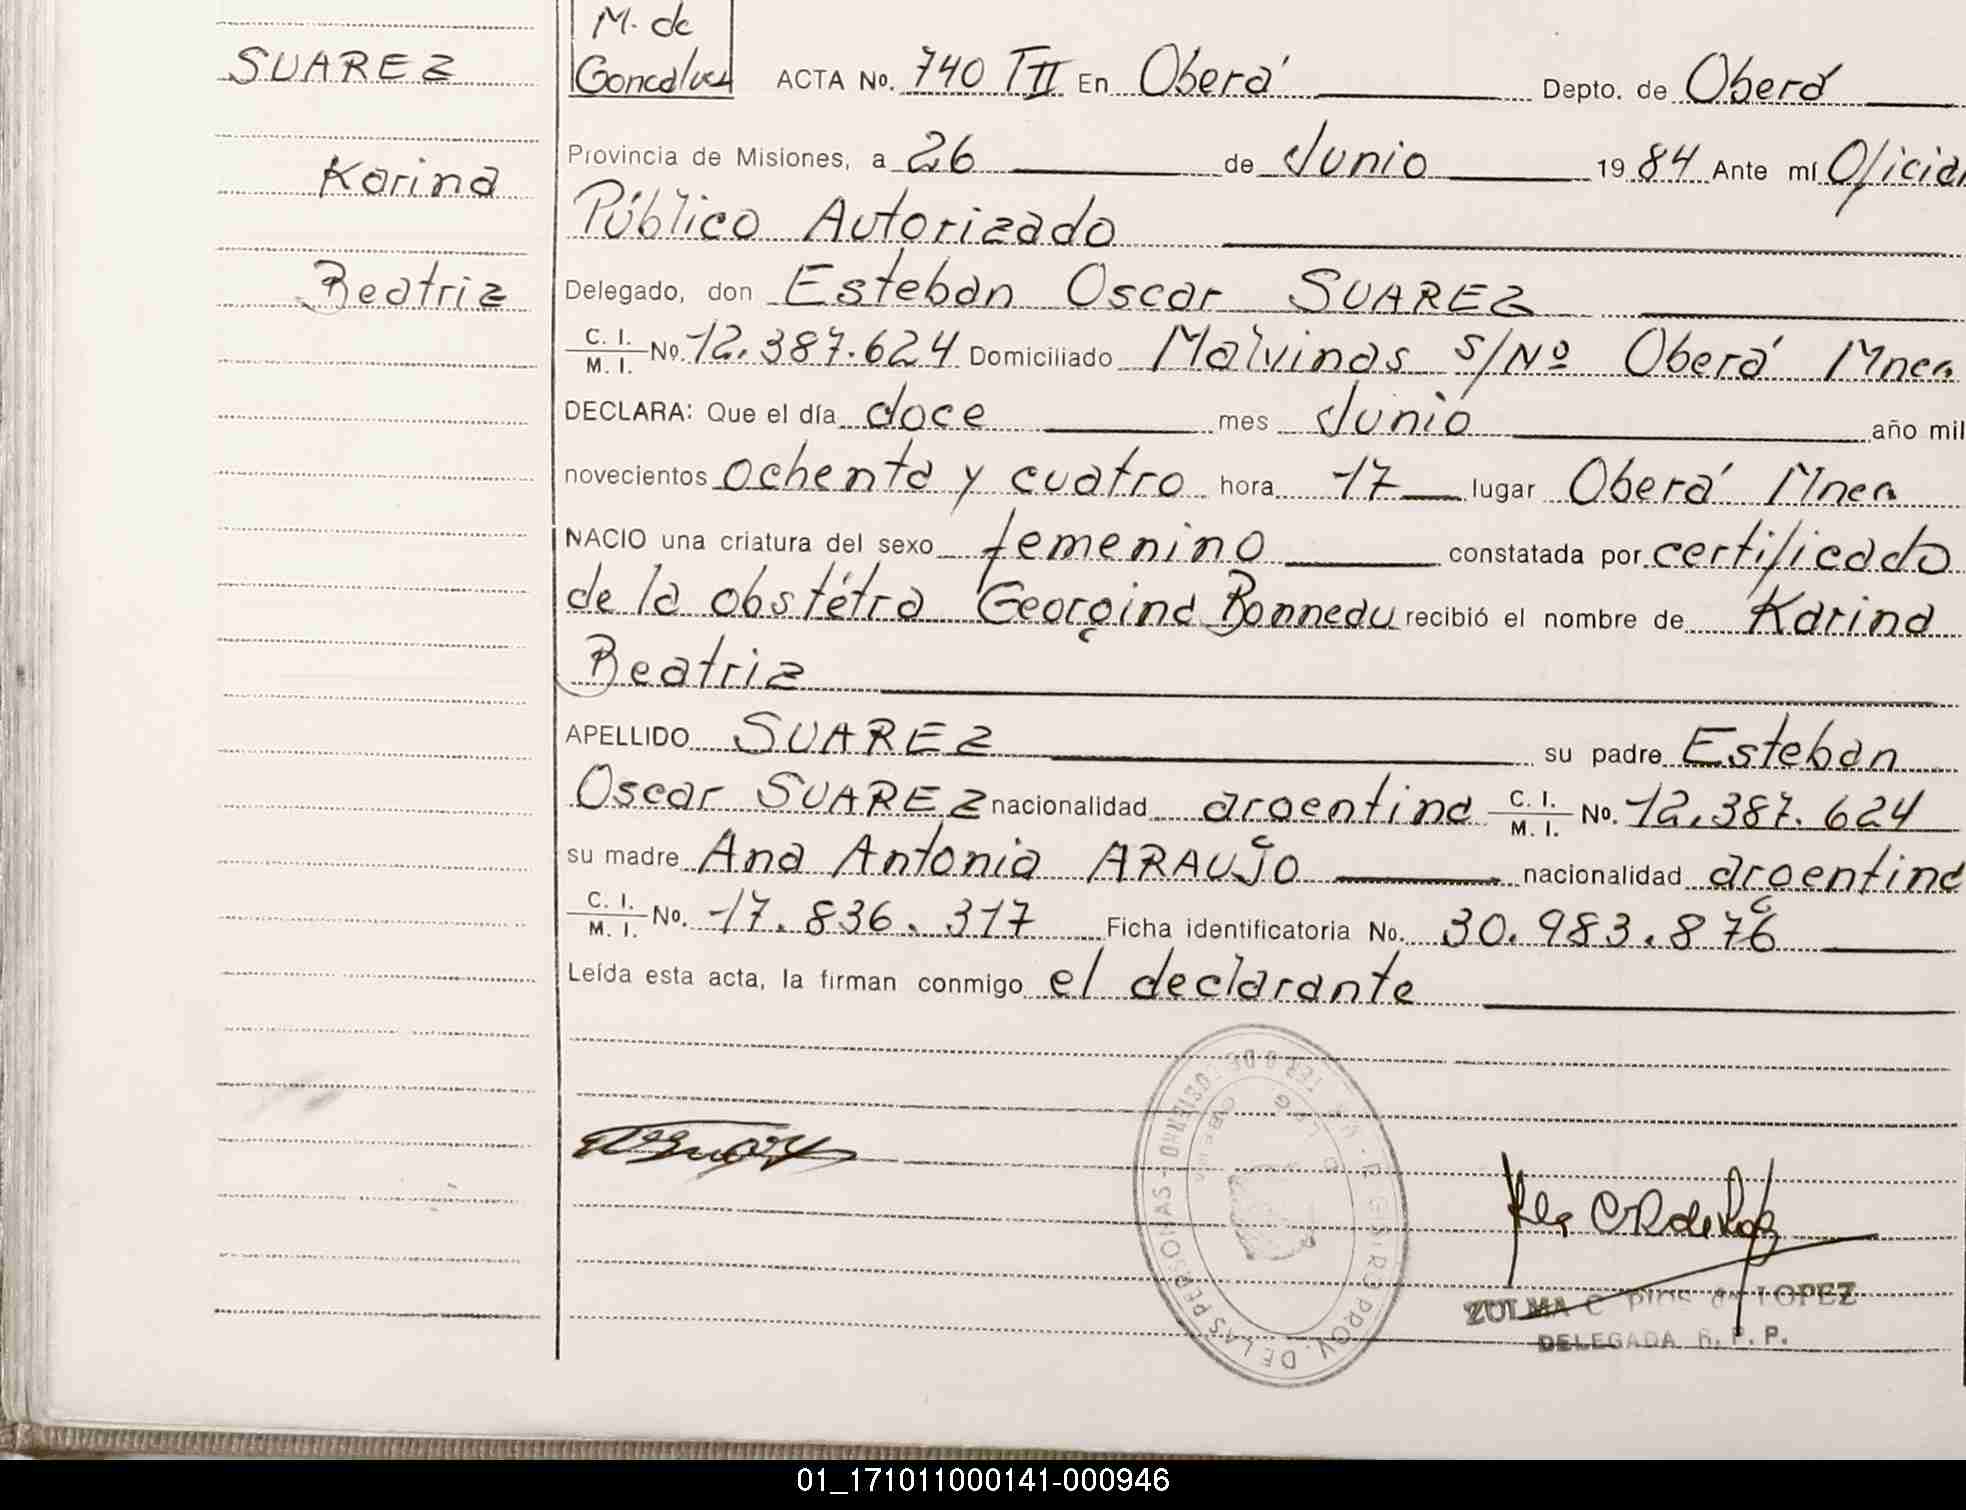 M. de
Goncalves
SUAREZ
Karina
Beatriz
ACTA No. 740 TII En Oberá Depto. de Oberá
Provincia de Misiones, a 26 de Junio 1984 Ante mí Oficial
Público Autorizado
Delegado, don Esteban Oscar SUAREZ
C. I. / M. I. No. 12.387.624 Domiciliado Malvinas s/Nº Oberá Mnes
DECLARA: Que el día doce mes Junio año mil
novecientos ochenta y cuatro hora 17 lugar Oberá Mnes
NACIO una criatura del sexo femenino constatada por certificado
de la obstétra Georgina Bonneau recibió el nombre de Karina
Beatriz
APELLIDO SUAREZ su padre Esteban
Oscar SUAREZ nacionalidad argentina C. I. / M. I. No. 12.387.624
su madre Ana Antonia ARAUJO nacionalidad argentina
C. I. / M. I. No. 17.836.317 Ficha identificatoria No. 30.983.876
Leída esta acta, la firman conmigo el declarante
REGISTRO PROV. DE LAS PERSONAS
ZULMA C. RIOS de LOPEZ
DELEGADA R. P. P.
01_171011000141-000946